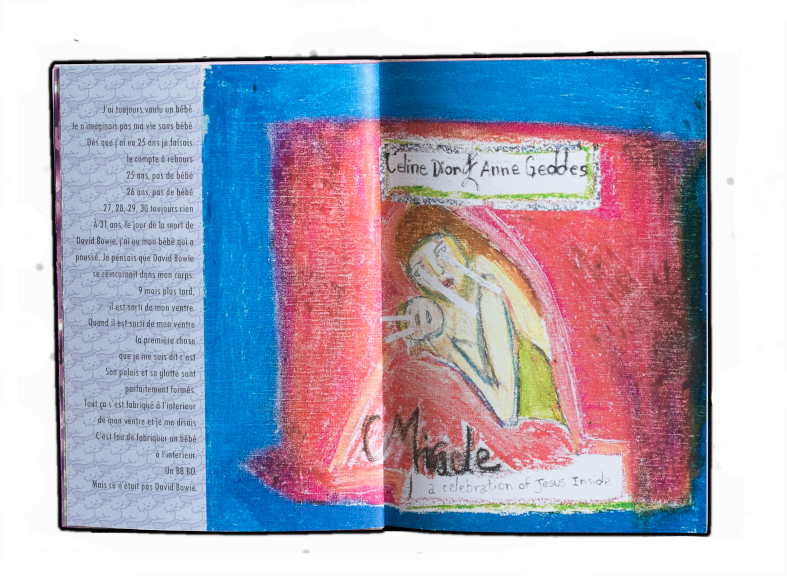 J'ai toujours voulu un bébé
Je n'imaginais pas ma vie sans bébé
Dès que j'ai eu 25 ans je faisais
le compte à rebours
25 ans, pas de bébé
26 ans, pas de bébé
27, 28, 29, 30 toujours rien
À 31 ans, le jour de la mort de
David Bowie, j'ai eu mon bébé qui a
poussé. Je pensais que David Bowie
se réincarnait dans mon corps.
9 mois plus tard,
il est sorti de mon ventre.
Quand il est sorti de mon ventre
la première chose
que je me suis dit c'est
Son palais et sa glotte sont
parfaitement formés.
Tout ça s'est fabriqué à l'interieur
de mon ventre et je me disais
C'est fou de fabriquer un bébé
à l'interieur
Un BB BO
Mais ce n'était pas David Bowie.
Celine Dion & Anne Geddes
Miracle
a celebration of Jesus Inside